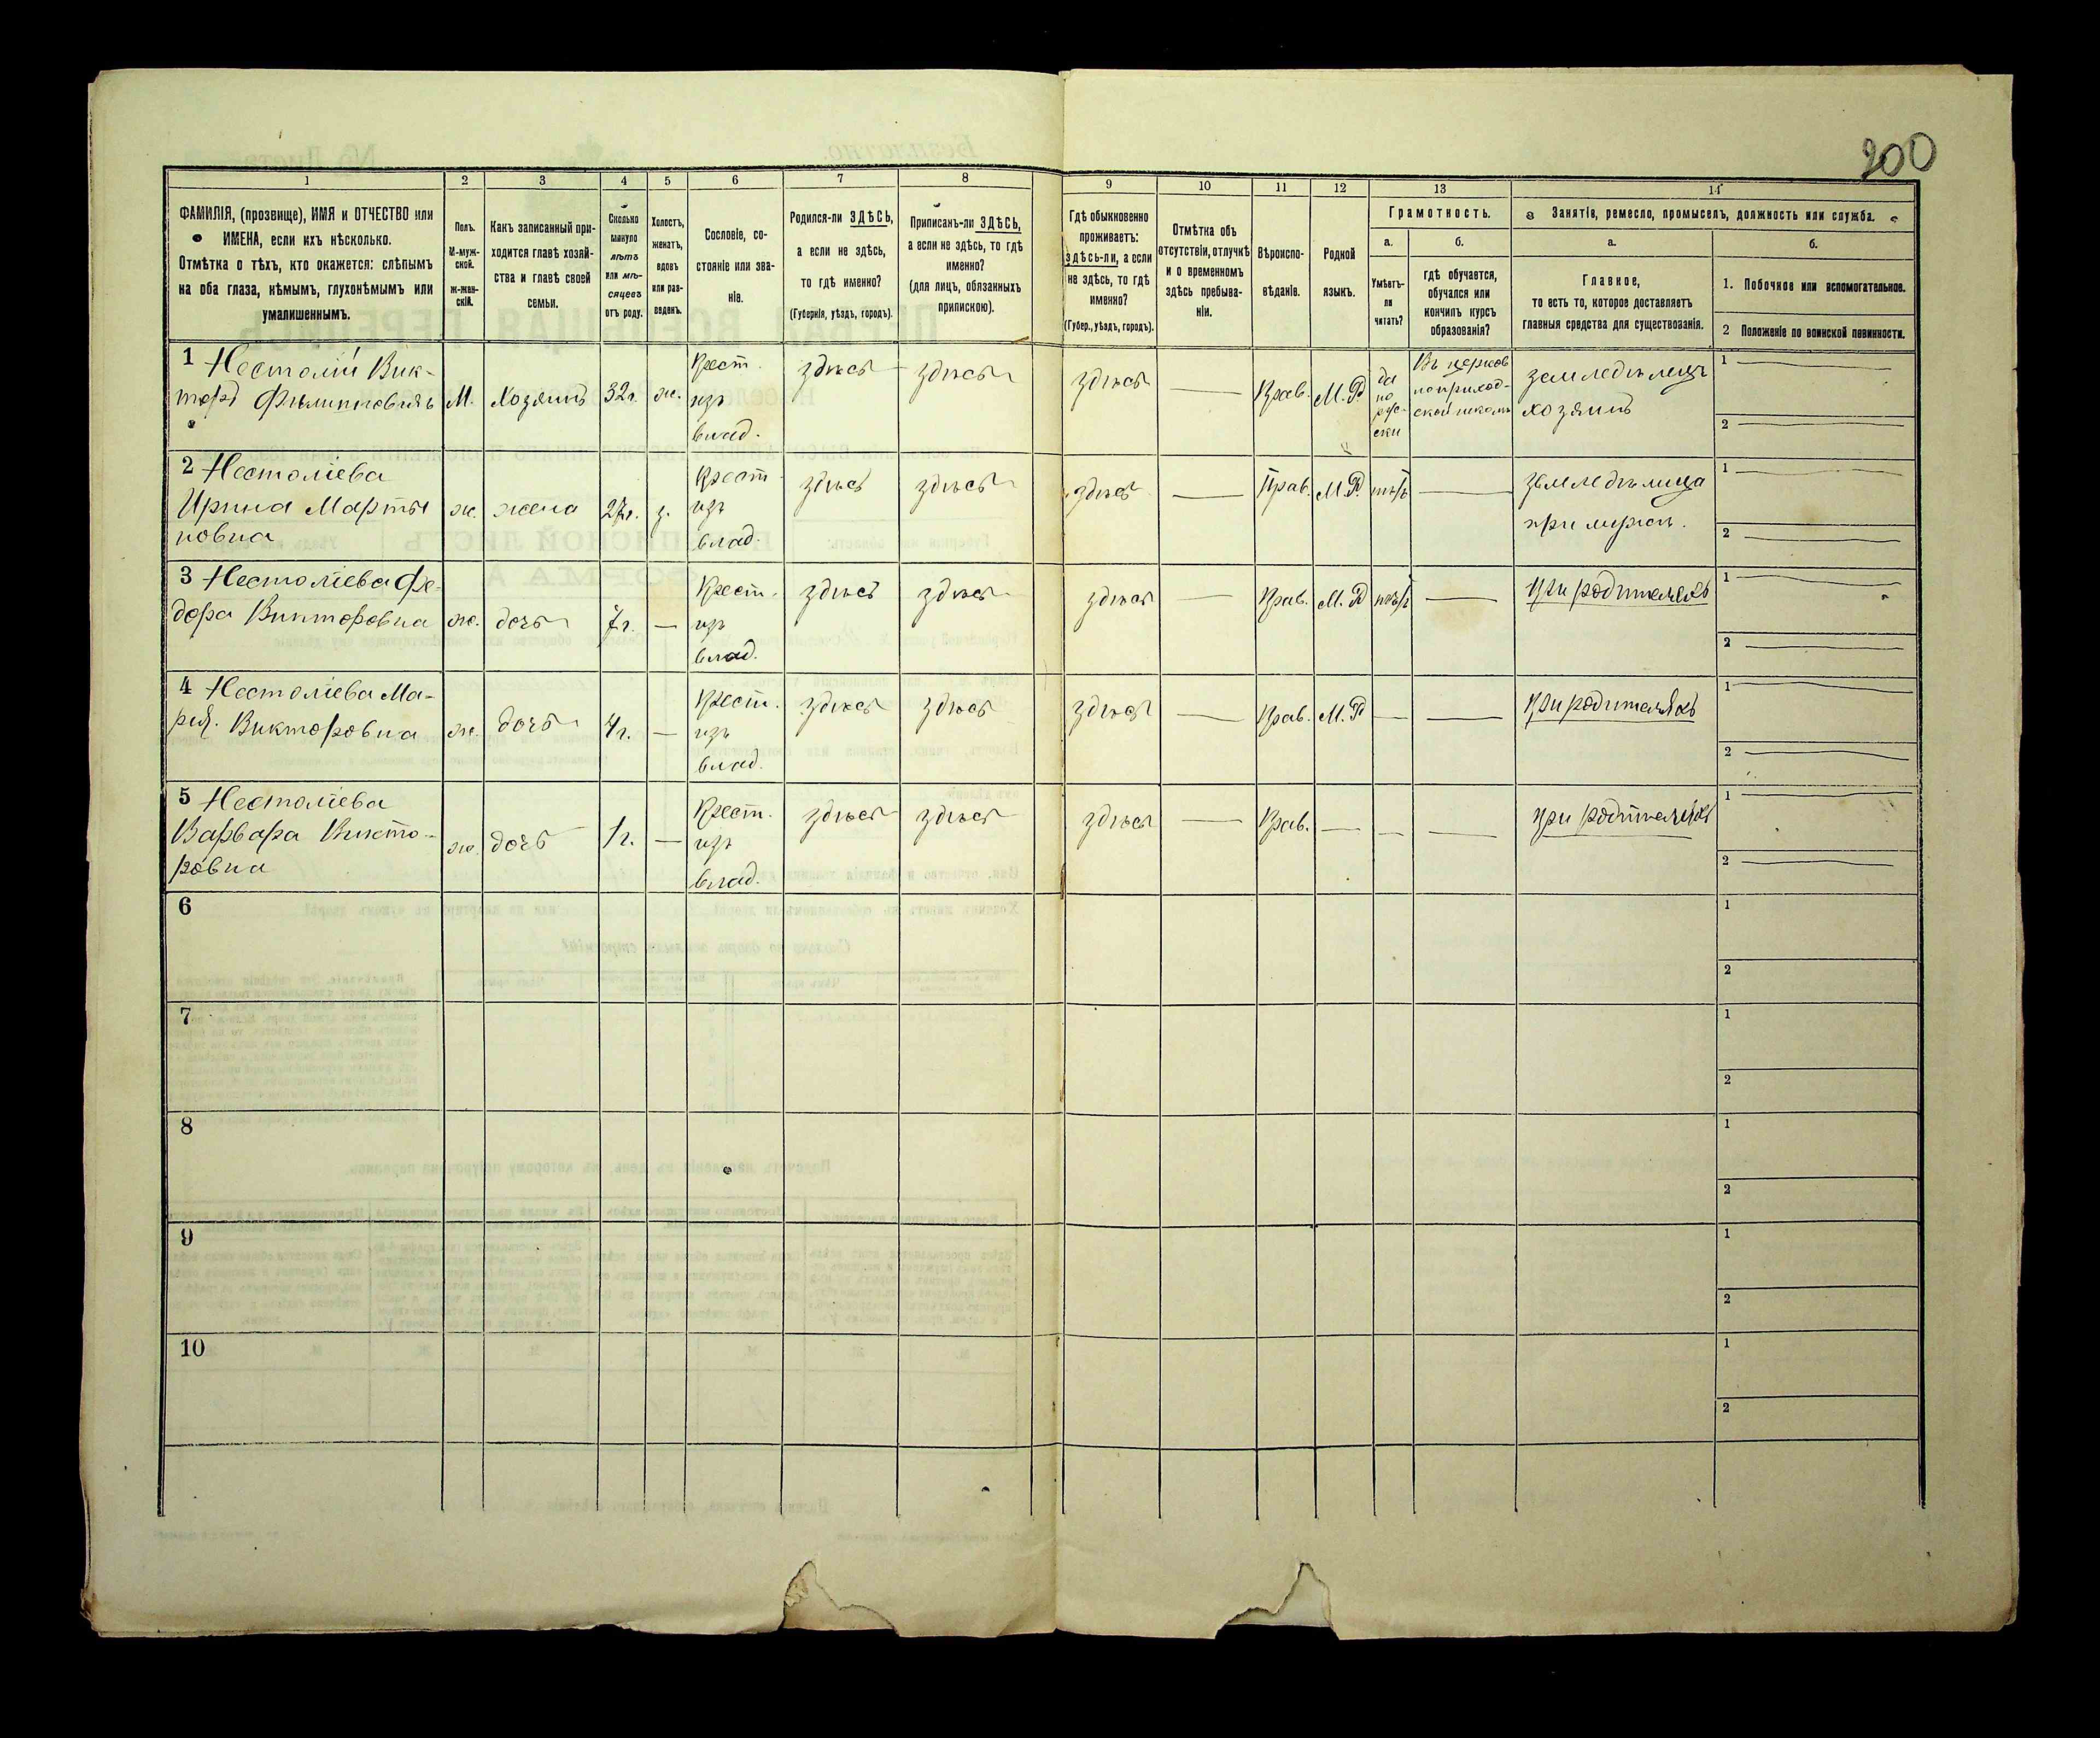 200
1 2 3 4 5 6 7 8 9 10 11 12 13 14
ФАМИЛІЯ, (прозвище), ИМЯ и ОТЧЕСТВО или
ИМЕНА, если ихъ нѣсколько.
Отмѣтка о тѣхъ, кто окажется: слѣпымъ
на оба глаза, нѣмымъ, глухонѣмымъ или
умалишеннымъ.
Полъ.
М-муж-
ской.
ж-жен-
скій.
Какъ записанный при-
ходится главѣ хозяй-
ства и главѣ своей
семьи.
Сколько
минуло
лѣтъ
или мѣ-
сяцевъ
отъ роду.
Холостъ,
женатъ,
вдовъ
или раз-
веденъ.
Сословіе, со-
стояніе или зва-
ніе.
Родился-ли ЗДѢСЬ,
а если не здѣсь,
то гдѣ именно?
(Губернія, уѣздъ, городъ).
Приписанъ-ли ЗДѢСЬ,
а если не здѣсь, то гдѣ
именно?
(для лицъ, обязанныхъ
припискою).
Гдѣ обыкновенно
проживаетъ:
здѣсь-ли, а если
не здѣсь, то гдѣ
именно?
(Губер., уѣздъ, городъ).
Отмѣтка объ
отсутствіи, отлучкѣ
и о временномъ
здѣсь пребыва-
ніи.
Вѣроиспо-
вѣданіе.
Родной
языкъ.
Грамотность.
а.
Умѣетъ-
ли
читать?
б.
гдѣ обучается,
обучался или
кончилъ курсъ
образованія?
Занятіе, ремесло, промыселъ, должность или служба.
а.
Главное,
то есть то, которое доставляетъ
главныя средства для существованія.
б.
1. Побочное или вспомогательное.
2 Положеніе по воинской повинности.
1 Нестолій Вик-
торъ Филипповичъ
М.
Хозяинъ
32г.
ж.
Крест.
изъ
влад.
здѣсь
здѣсь
здѣсь
—
Прав.
М. Р.
да
по
рус-
ски
Въ церков
но приход-
ской школѣ
земледѣлецъ
хозяинъ
1 —
2 —
2 Нестоліева
Ирина Марты
новна
ж.
жена
27г.
з.
Крест
изъ
влад.
здѣсь
здѣсь
здѣсь
—
Прав.
М. Р.
нѣтъ
—
земледѣлица
при мужѣ.
1 —
2 —
3 Нестоліева Фе-
дора Викторовна
ж.
дочь
7г.
—
Крест.
изъ
влад.
здѣсь
здѣсь
здѣсь
—
Прав.
М. Р
нѣтъ
—
при родителяхъ
1 —
2 —
4 Нестоліева Ма-
рія. Викторовна
ж.
дочь
4г.
—
Крест.
изъ
влад.
здѣсь
здѣсь
здѣсь
—
Прав.
М. Р
—
—
при родителяхъ
1 —
2 —
5 Нестоліева
Варвара Викто-
ровна
ж.
дочь
1г.
—
Крест.
изъ
влад.
здѣсь
здѣсь
здѣсь
—
Прав.
—
—
—
при родителяхъ
1 —
2 —
6
1
2
7
1
2
8
1
2
9
1
2
10
1
2